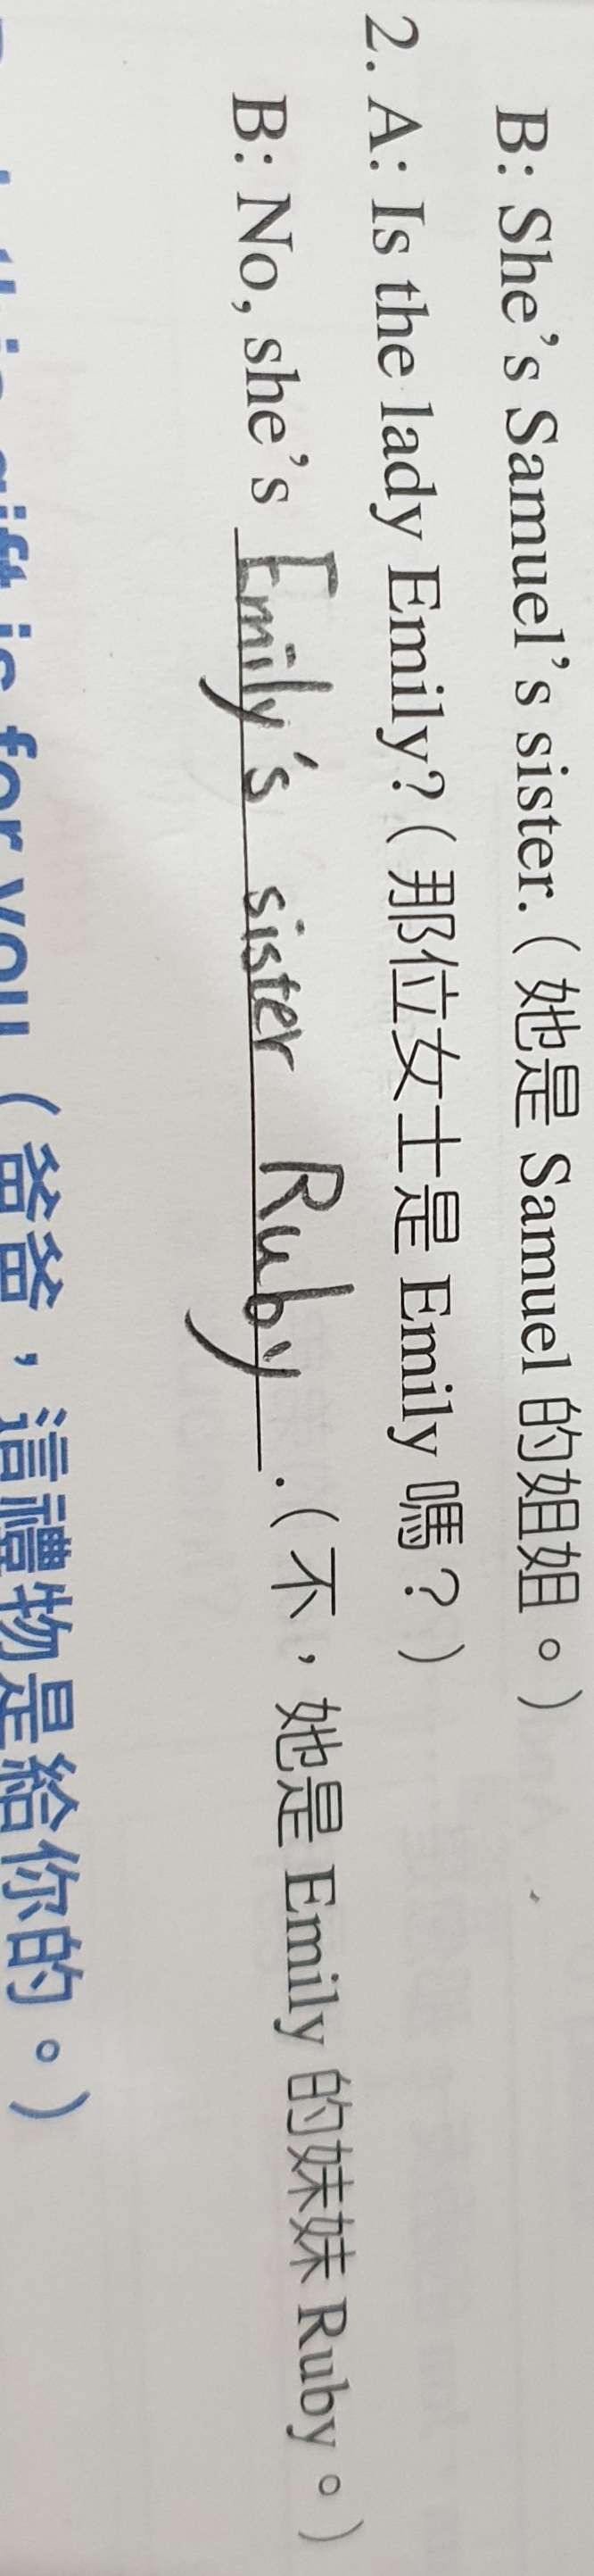 B: She's Samuel's sister. (她是 Samuel 的姐姐。)
2. A: Is the lady Emily? (那位女士是 Emily 嗎？)
B: No, she's Emily's sister Ruby. (不，她是 Emily 的妹妹 Ruby。)
this gift is for you (爸爸，這禮物是給你的。)